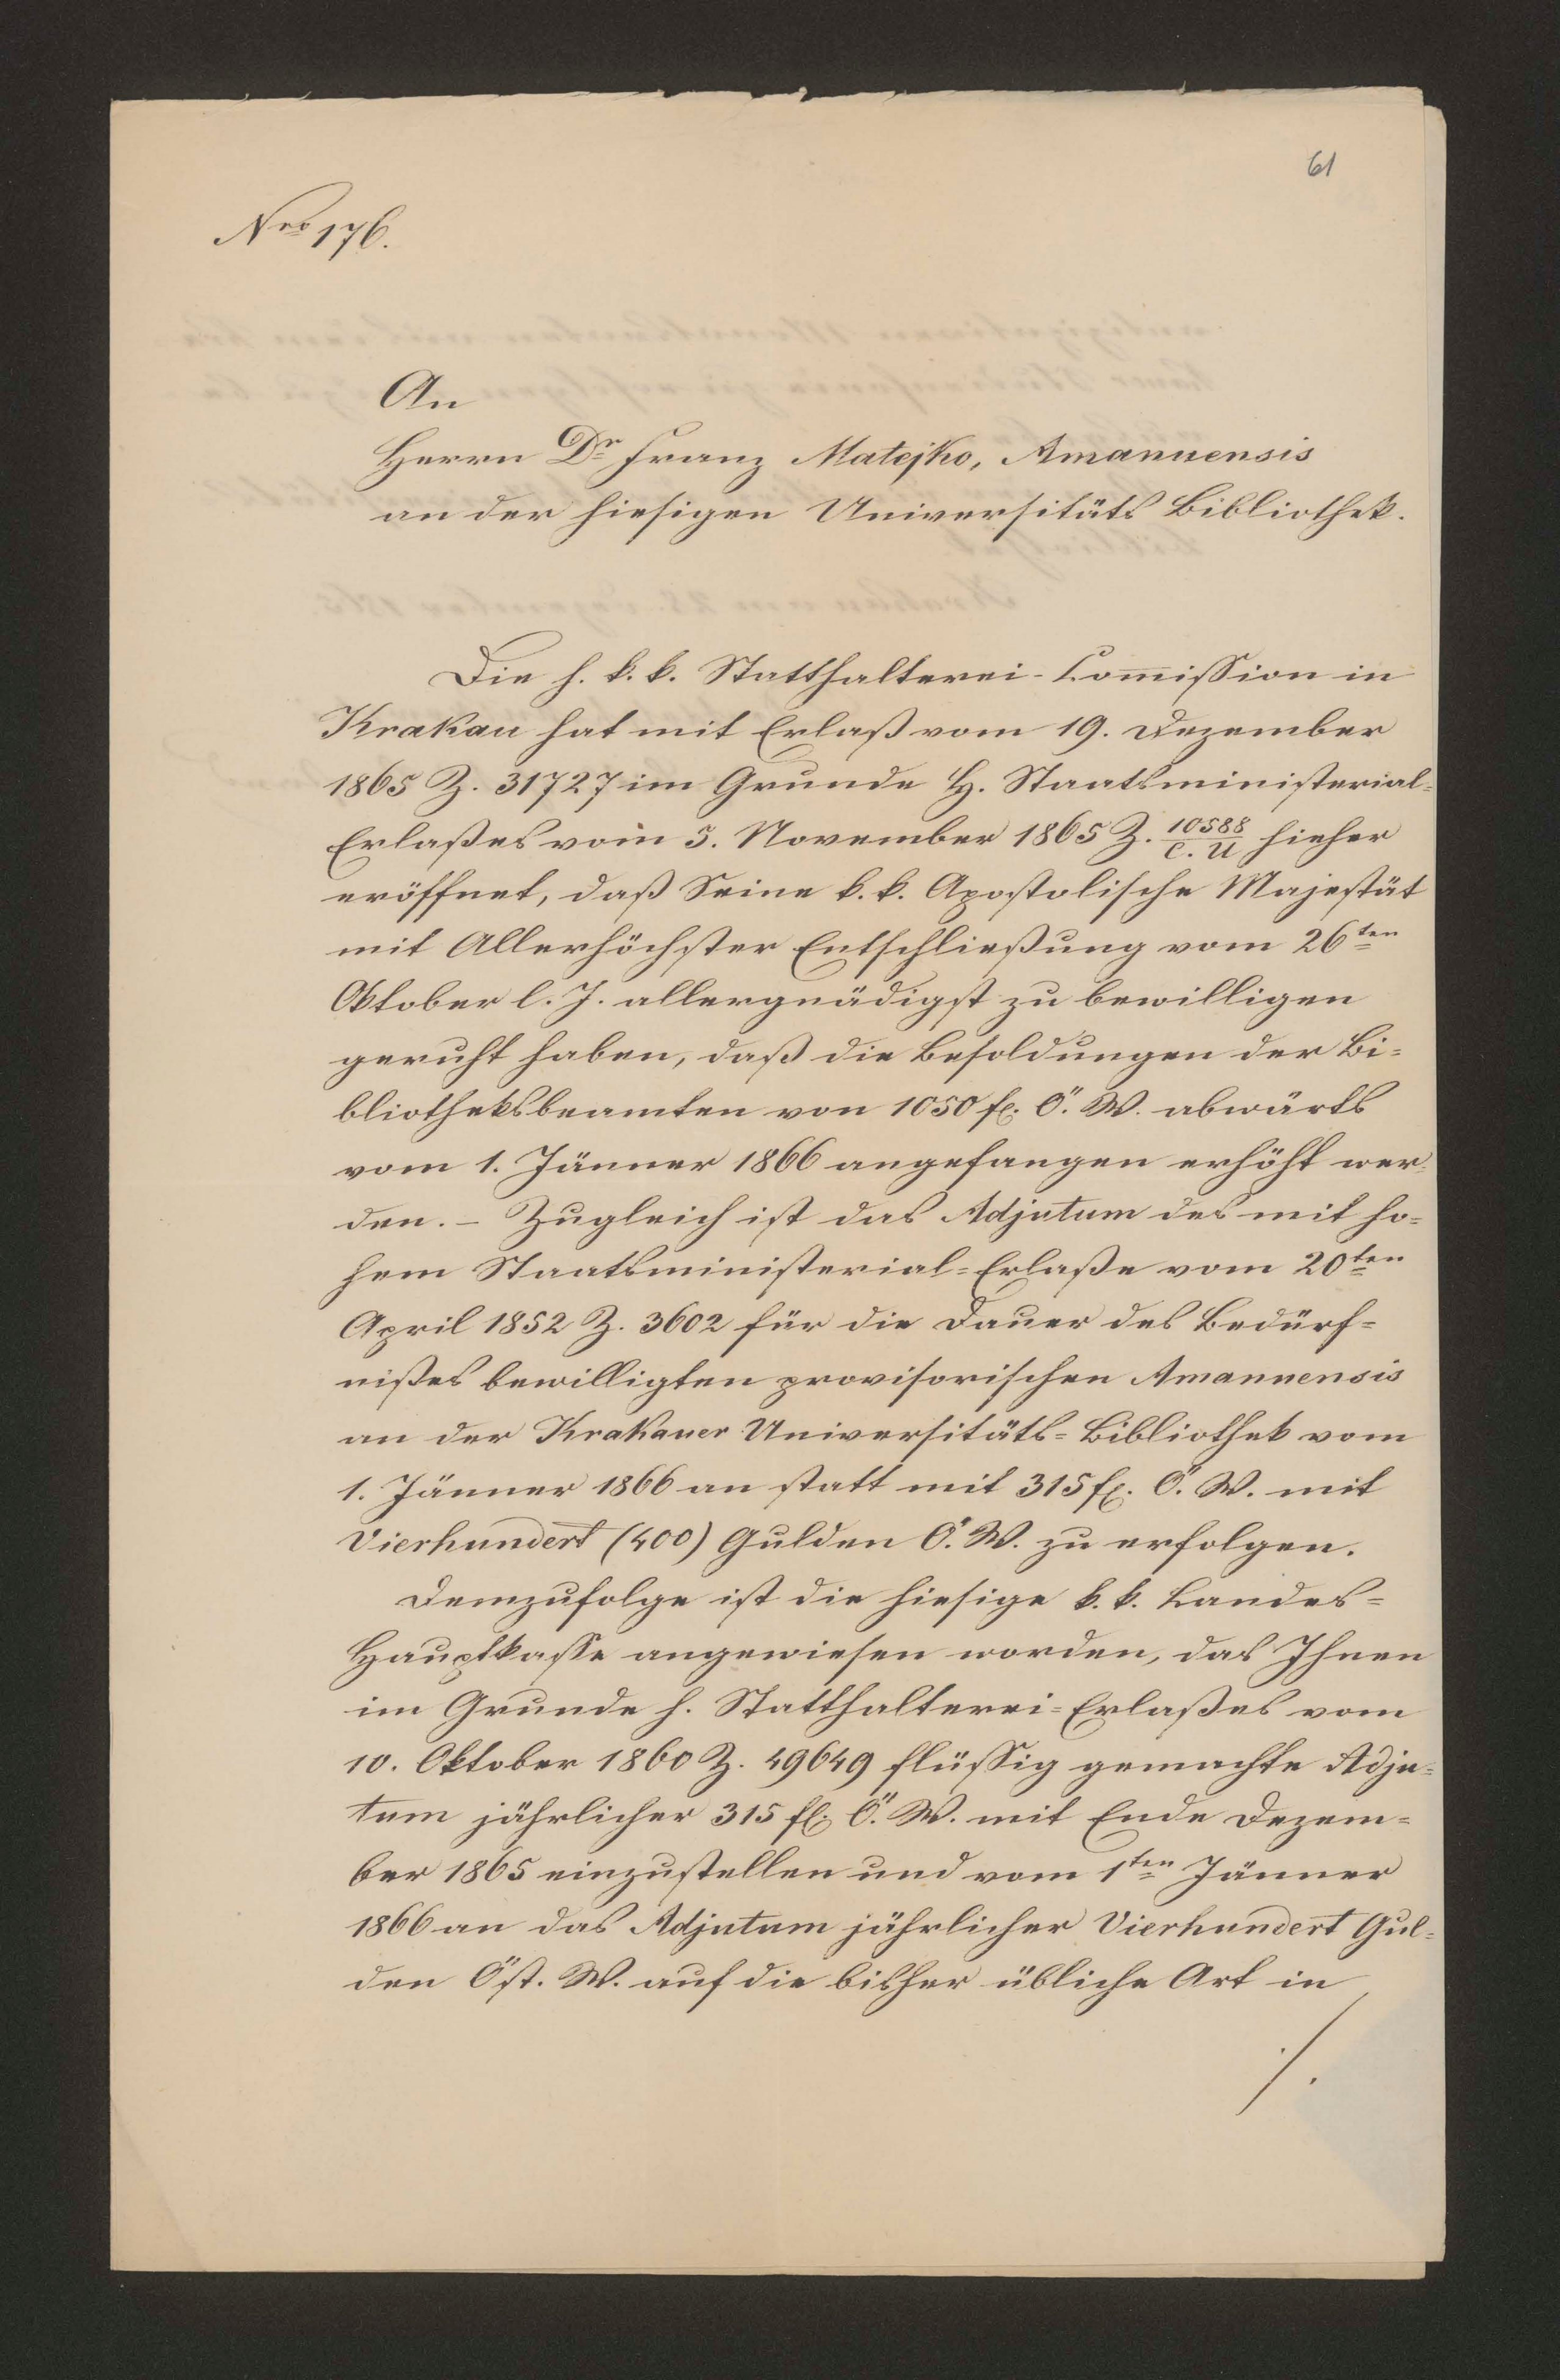 61
Nro 176.
An
Herrn Dr Franz Matejko, Amanuensis
an der hiesigen Universitäts Bibliothek.
Die h. k. k. Statthalterei-Com̄ission in
Krakau hat mit Erlaß vom 19. Dezember
1865 Z. 31727 im Grunde H. Staatsministerial-
Erlaßes vom 5. November 1865 Z. 10588/C. U hieher
eröffnet, daß Seine k. k. Apostolische Majestät
mit Allerhöchster Entschließung vom 26ten
Oktober l. J. allergnädigst zu bewilligen
geruht haben, daß die Besoldungen der Bi-
bliotheksbeamten von 1050 fl. Ö. W. abwärts
vom 1. Jänner 1866 angefangen erhöht wer-
den. – Zugleich ist das Adjutum des mit ho-
hem Staatsministerial-Erlaße vom 20ten
April 1852 Z. 3602 für die Dauer des Bedürf-
nißes bewilligten provisorischen Amanuensis
an der Krakauer Universitäts-Bibliothek vom
1. Jänner 1866 an statt mit 315 fl. Ö. W. mit
Vierhundert (400) Gulden Ö. W. zu erfolgen.
Demzufolge ist die hiesige k. k. Landes-
Hauptkasse angewiesen worden, das Ihnen
im Grunde h. Statthalterei-Erlaßes vom
10. Oktober 1860 Z. 49649 flüssig gemachte Adju-
tum jährlicher 315 fl. Ö. W. mit Ende Dezem-
ber 1865 einzustellen und vom 1ten Jänner
1866 an das Adjutum jährlicher Vierhundert Gul-
den Öst. W. auf die bisher übliche Art in
./.